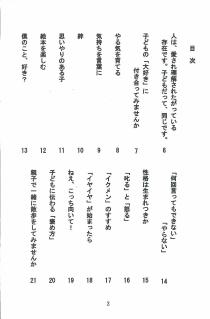 目次
人は、愛され理解されたがっている
存在です。子どもだって、同じです。 6
子どもの「大好き」に
付き合ってみませんか 7
やる気を育てる 8
気持ちを言葉に 9
絆 10
思いやりのある子 11
絵本を楽しむ 12
僕のこと、好き？ 13
「何回言ってもできない」
「やらない」 14
性格は生まれつきか 15
「叱る」と「怒る」 16
「イクメン」のすすめ 17
「イヤイヤ」が始まったら 18
ねえ、こっち向いて！ 19
子どもに伝わる「褒め方」 20
親子で一緒に散歩をしてみませんか 21
2